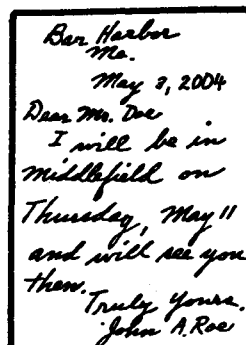 Bar Harbor
Me.
May 3, 2004
Dear Mr. Doe
I will be in
Middlefield on
Thursday, May 11
and will see you
then.
Truly Yours,
John A. Roe